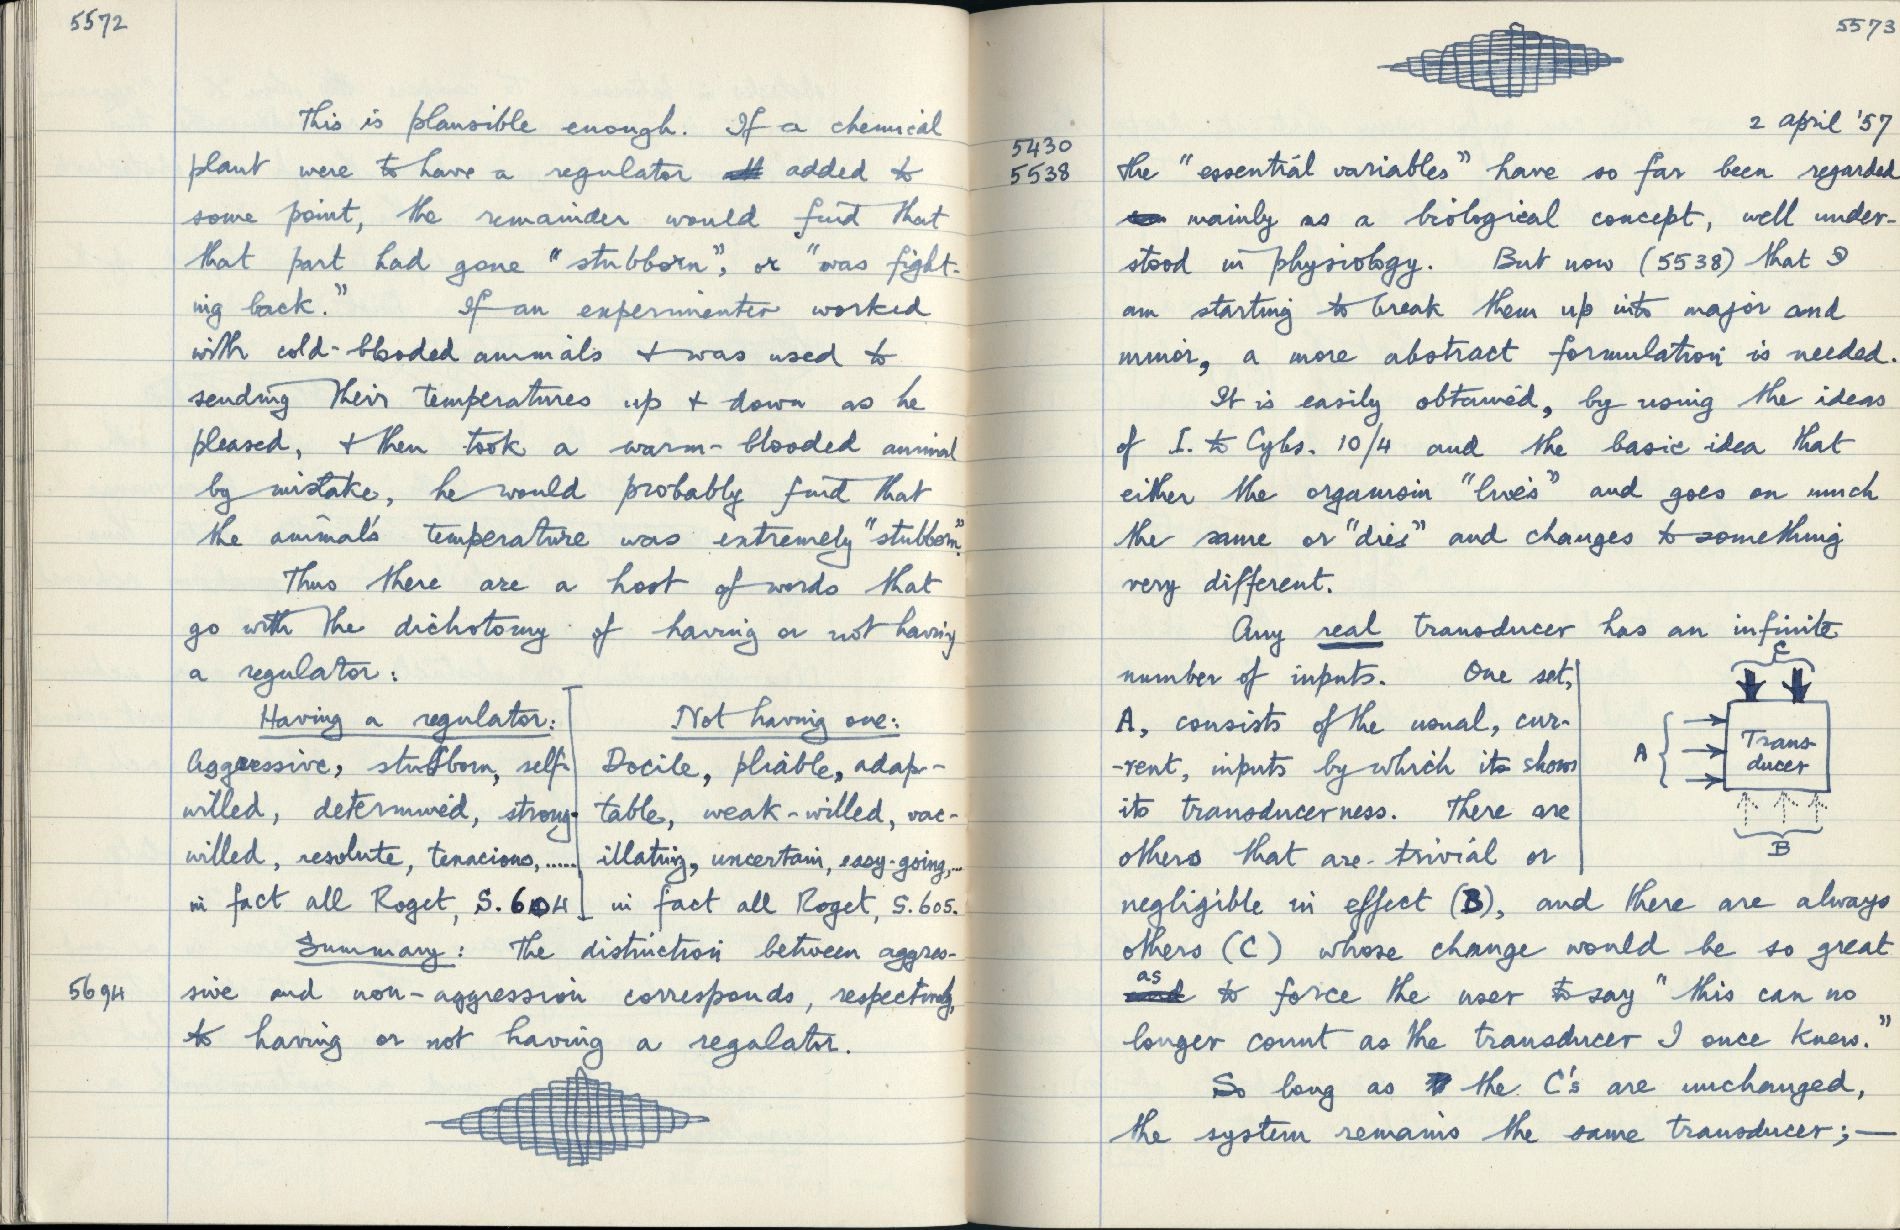 5572
This is plausible enough. If a chemical
plant were to have a regulator added to
some point, the remainder would find that
that part had gone "stubborn", or "was fight-
ing back." If an experimenter worked
with cold-blooded animals + was used to
sending their temperatures up + down as he
pleased, + then took a warm-blooded animal
by mistake, he would probably find that
the animal's temperature was extremely "stubborn".
Thus there are a host of words that
go with the dichotomy of having or not having
a regulator:
Having a regulator:
Aggressive, stubborn, self-
willed, determined, strong-
willed, resolute, tenacious,......
in fact all Roget, S.604
Not having one:
Docile, pliable, adap-
table, weak-willed, vac-
illating, uncertain, easy-going,...
in fact all Roget, S.605.
Summary: The distinction between aggres-
5694
sive and non-aggression corresponds, respectively,
to having or not having a regulator.
5573
2 April '57
5430
5538
The "essential variables" have so far been regarded
mainly as a biological concept, well under-
stood in physiology. But now (5538) that I
am starting to break them up into major and
minor, a more abstract formulation is needed.
It is easily obtained, by using the ideas
of I. to Cybs. 10/4 and the basic idea that
either the organism "lives" and goes on much
the same or "dies" and changes to something
very different.
Any real transducer has an infinite
number of inputs. One set,
A, consists of the usual, cur-
-rent, inputs by which it shows
its transducerness. There are
others that are trivial or
negligible in effect (B), and there are always
others (C) whose change would be so great
as to force the user to say "this can no
longer count as the transducer I once knew."
So long as the C's are unchanged,
the system remains the same transducer;—
C
A
Trans-
ducer
B